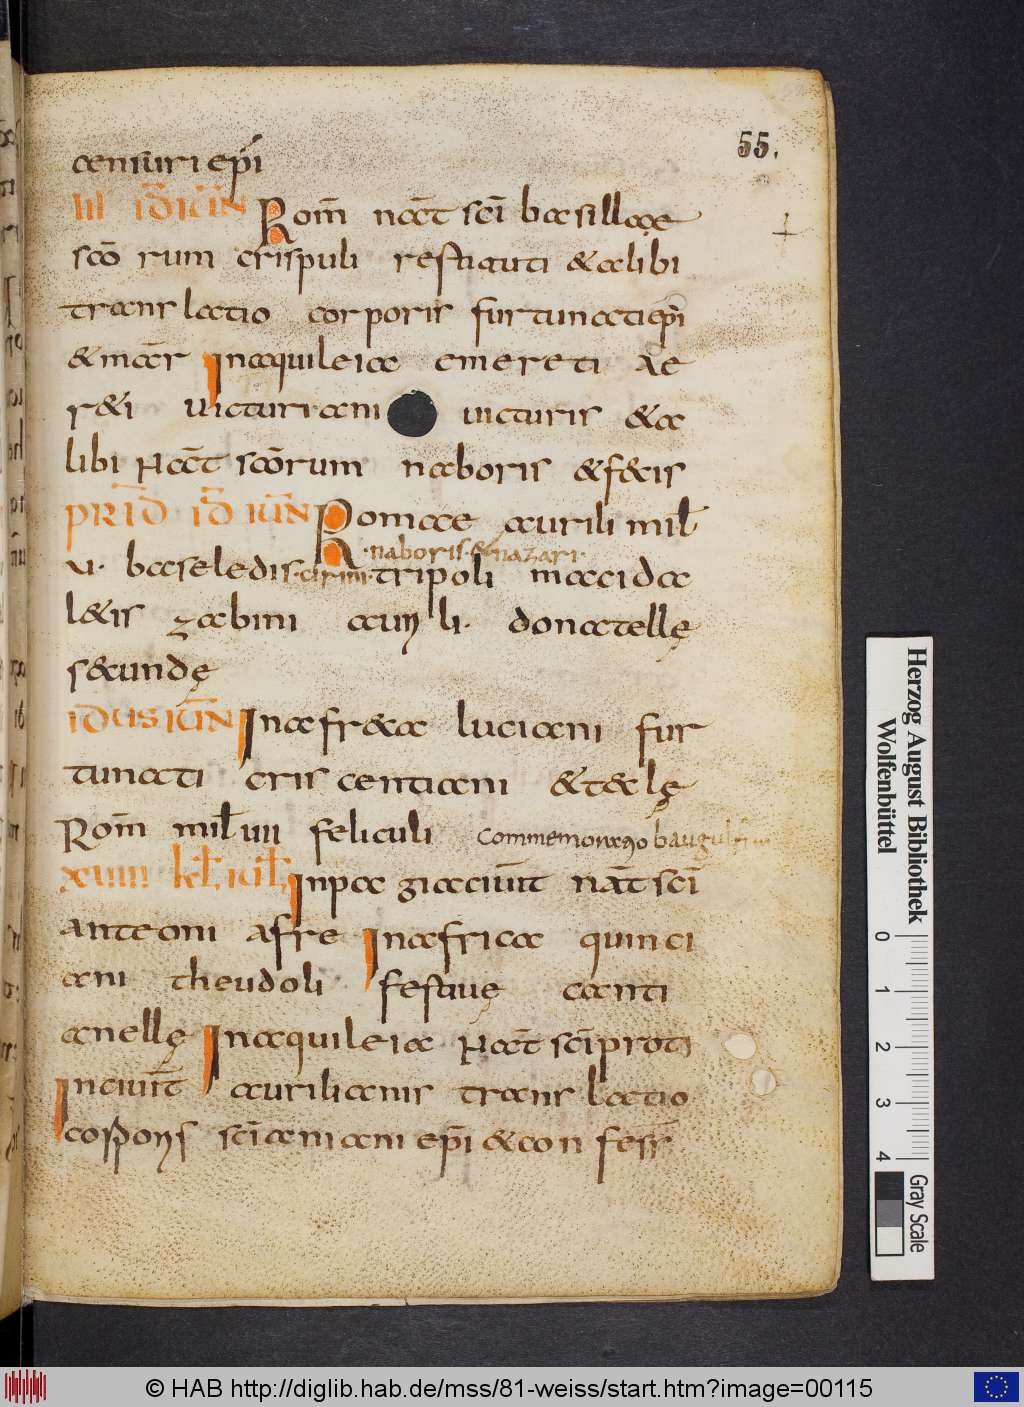 55.
censuri ep̄i
III ID̄ IUN̄ Rom̄ nat̄ sc̄i basillae
scō rum crispuli restituti & alibi
translatio corporis furtunati ep̄i
& mar̄ In aquileia emereti ae
r&i uicturiani uicturis & a
libi Nat̄ scōrum naboris & f&cis
PRID̄ ID̄ IUN̄ Romae aurili mil̄
·naboris·&nazari·
VI· baseledis·cirini·tripoli macida
l&is zabini aurili· donatellę
s&undę
IDUS IUN̄ In afr&a luciani fur
tunati criscentiani &t&lę
Rom̄ mil̄ uiiii feliculi commemoratio baugulfi
XUIIII kl̄ iul̄ In pa giaciuit̄ nat̄ sc̄i
anteoni afre In africa quinci
ani theudoli festiuę canti
anellę In aquileia Nat̄ sc̄i proti
In ciuit̄ aurilianis translatio
corporis sc̄i aniani ep̄i & confess̄
Herzog August Bibliothek
Wolfenbüttel
0 1 2 3 4
Gray Scale
© HAB http://diglib.hab.de/mss/81-weiss/start.htm?image=00115